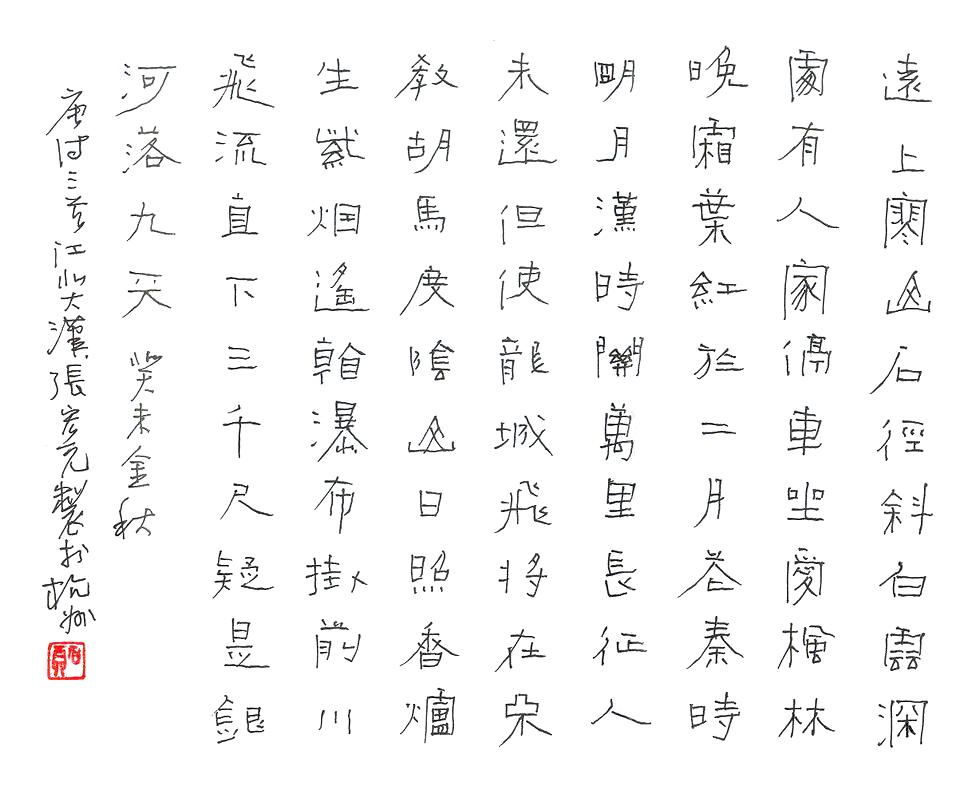 遠上寒山石徑斜白雲深
處有人家停車坐愛楓林
晚霜葉紅於二月花秦時
明月漢時關萬里長征人
未還但使龍城飛將在不
教胡馬度陰山日照香爐
生紫烟遙看瀑布掛前川
飛流直下三千尺疑是銀
河落九天 癸未金秋
唐诗三首江北大漢張宏元製於杭州